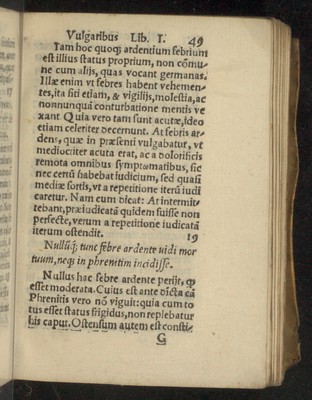 Vulgaribus Lib. I. 49
Tam hoc quoq; ardentium febrium
est illius status proprium, non cõmu-
ne cum alijs, quas vocant germanas.
Illæ enim vt febres habent vehemen-
tes, ita siti etiam, & vigilijs, molestia, ac
nonnunquã conturbatione mentis ve
xant Quia vero tam sunt acutæ, ideo
etiam celeriter decernunt. At febris ar-
dens, quæ in præsenti vulgabatur, vt
mediocriter acuta erat, ac a dolorificis
remota omnibus symptomatibus, sic
nec certũ habebat iudicium, sed quasi
mediæ sortis, vt a repetitione iterũ iudi
caretur. Nam cum dicat: At intermit-
tebant, præiudicatã quidem fuisse non
perfecte, verum a repetitione iudicatã
iterum ostendit. 19
Nullũq; tunc febre ardente uidi mor
tuum, neq; in phrenitim incidisse.
Nullus hac febre ardente perijt, q
esset moderata. Cuius est ante dicta cã
Phrenitis vero nõ viguit: quia cum to
tus esset status frigidus, non replebatur
his caput. Ostensum autem est consti-
G